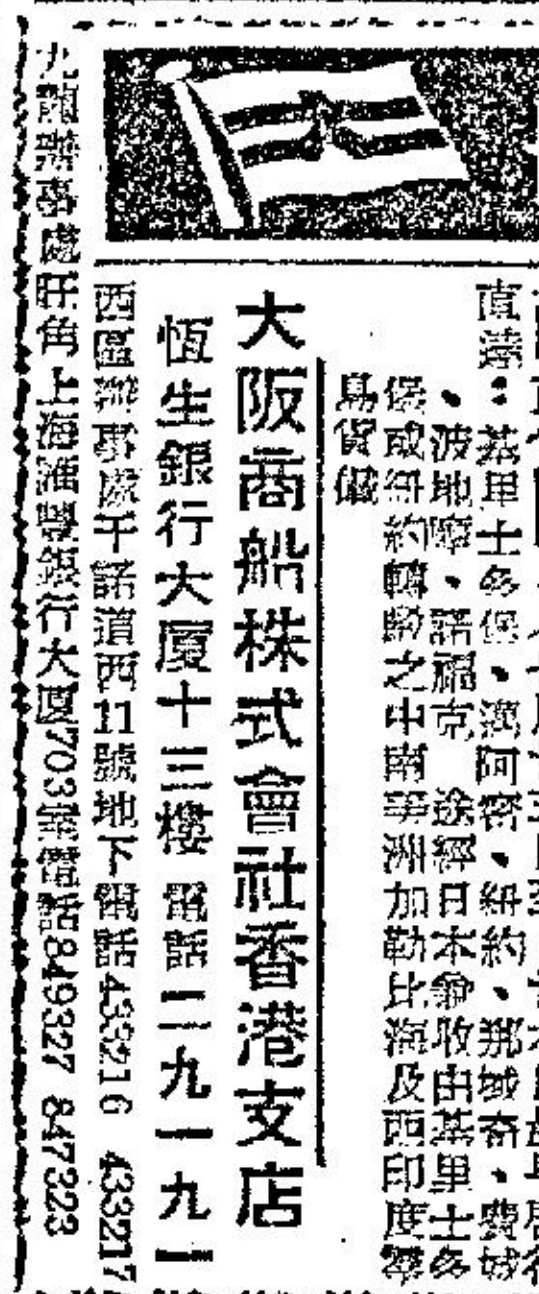 直達：基里士多保、滿阿密、紐約、那域奇、費城
、波地摩、諾福克 途經日本兼收由基里士多
保或紐約轉駁之中南美洲加勒比海及西印度羣
島貨儎
大阪商船株式會社香港支店
恆生銀行大廈十三樓 電話 二九一九一
西區辦事處干諾道西11號地下電話 433216 433217
九龍辦事處旺角上海滙豐銀行大廈703室電話849327 847323